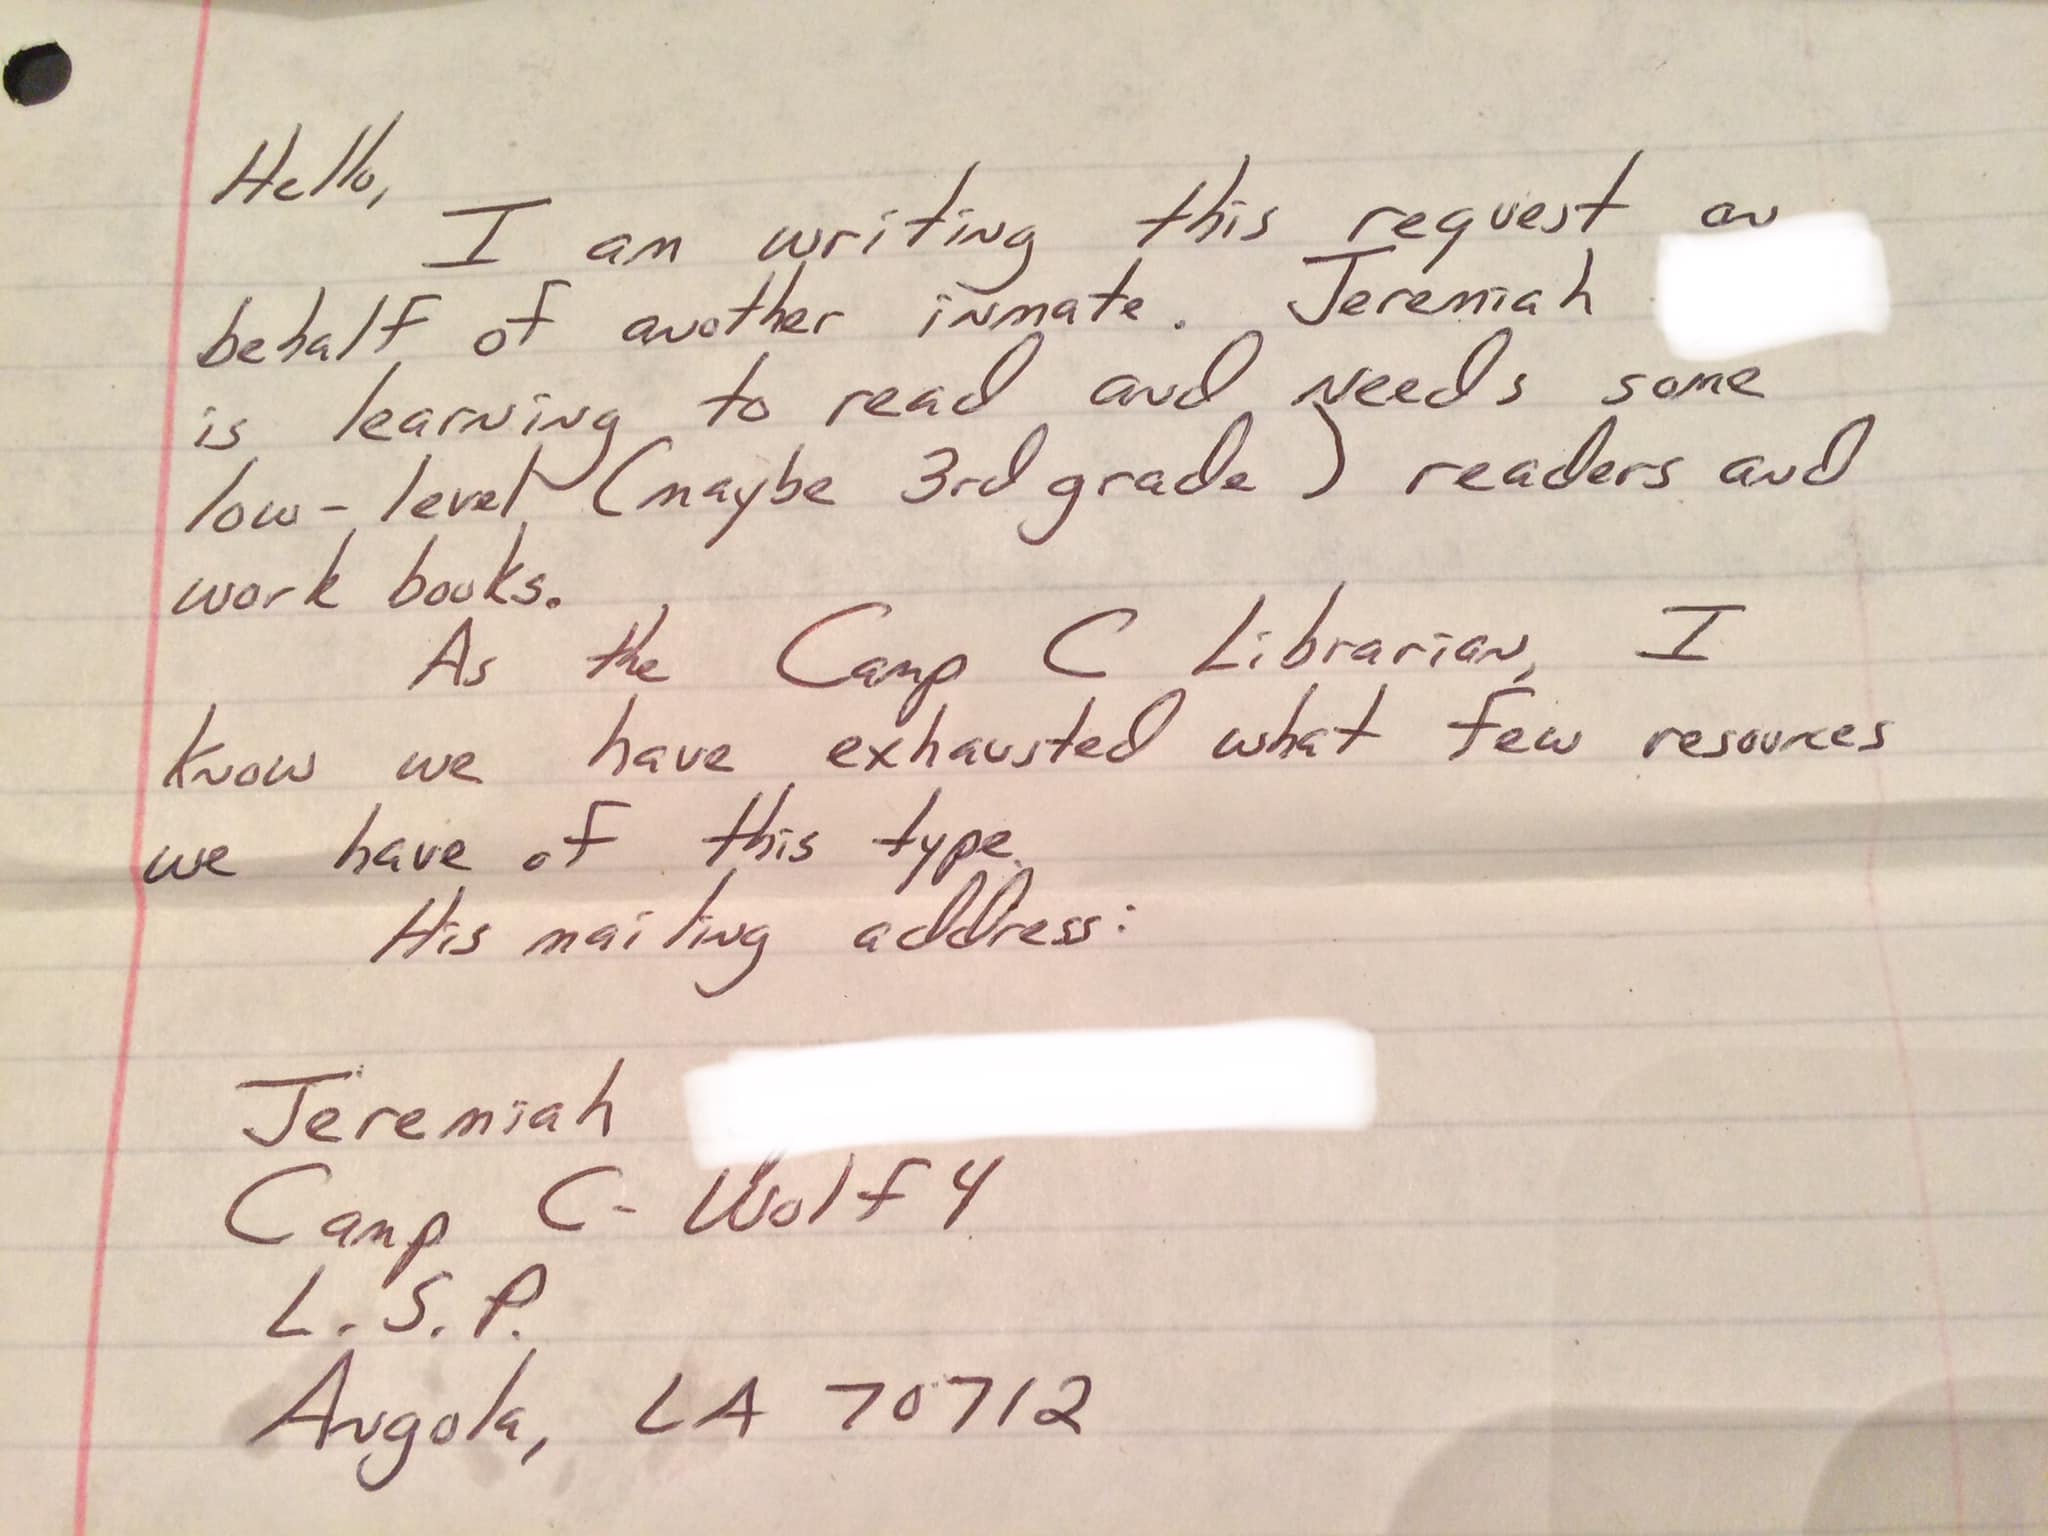 Hello,
I am writing this request on
behalf of another inmate. Jeremiah
is learning to read and needs some
low-level (maybe 3rd grade) readers and
work books.
As the Camp C Librarian, I
know we have exhausted what few resources
we have of this type.
His mailing address:
Jeremiah
Camp C- Wolf 4
L.S.P.
Angola, LA 70712